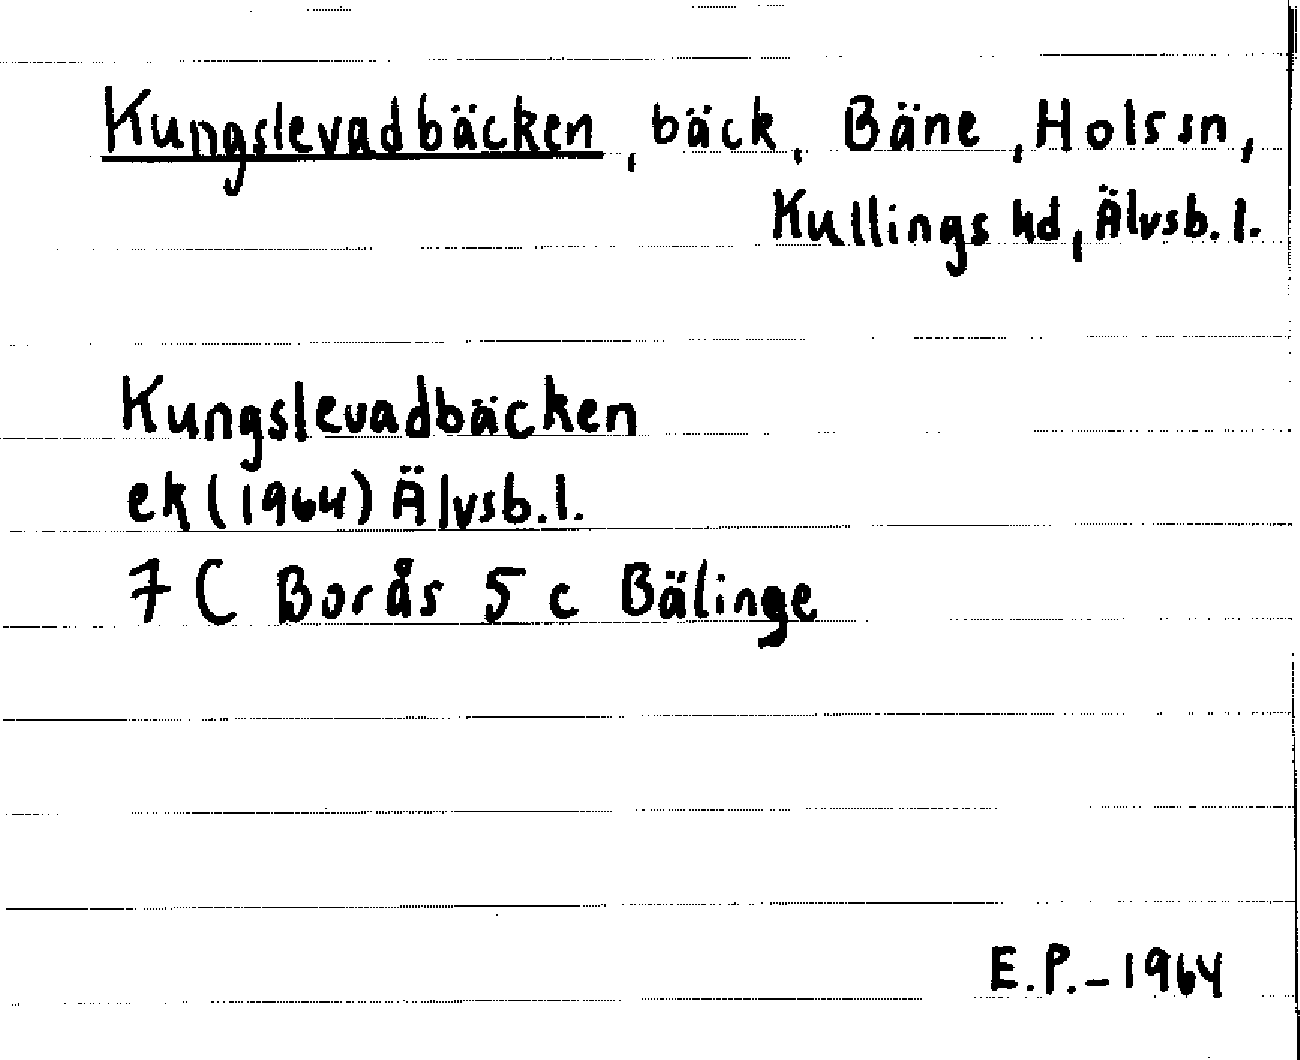 Kungslevadbäcken, bäck, Bäne, Hols sn,
Kullings hd, Älvsb. l.
Kungslevadbäcken
ek (1964) Älvsb. l.
7 C Borås 5 c Bälinge
E.P. - 1964